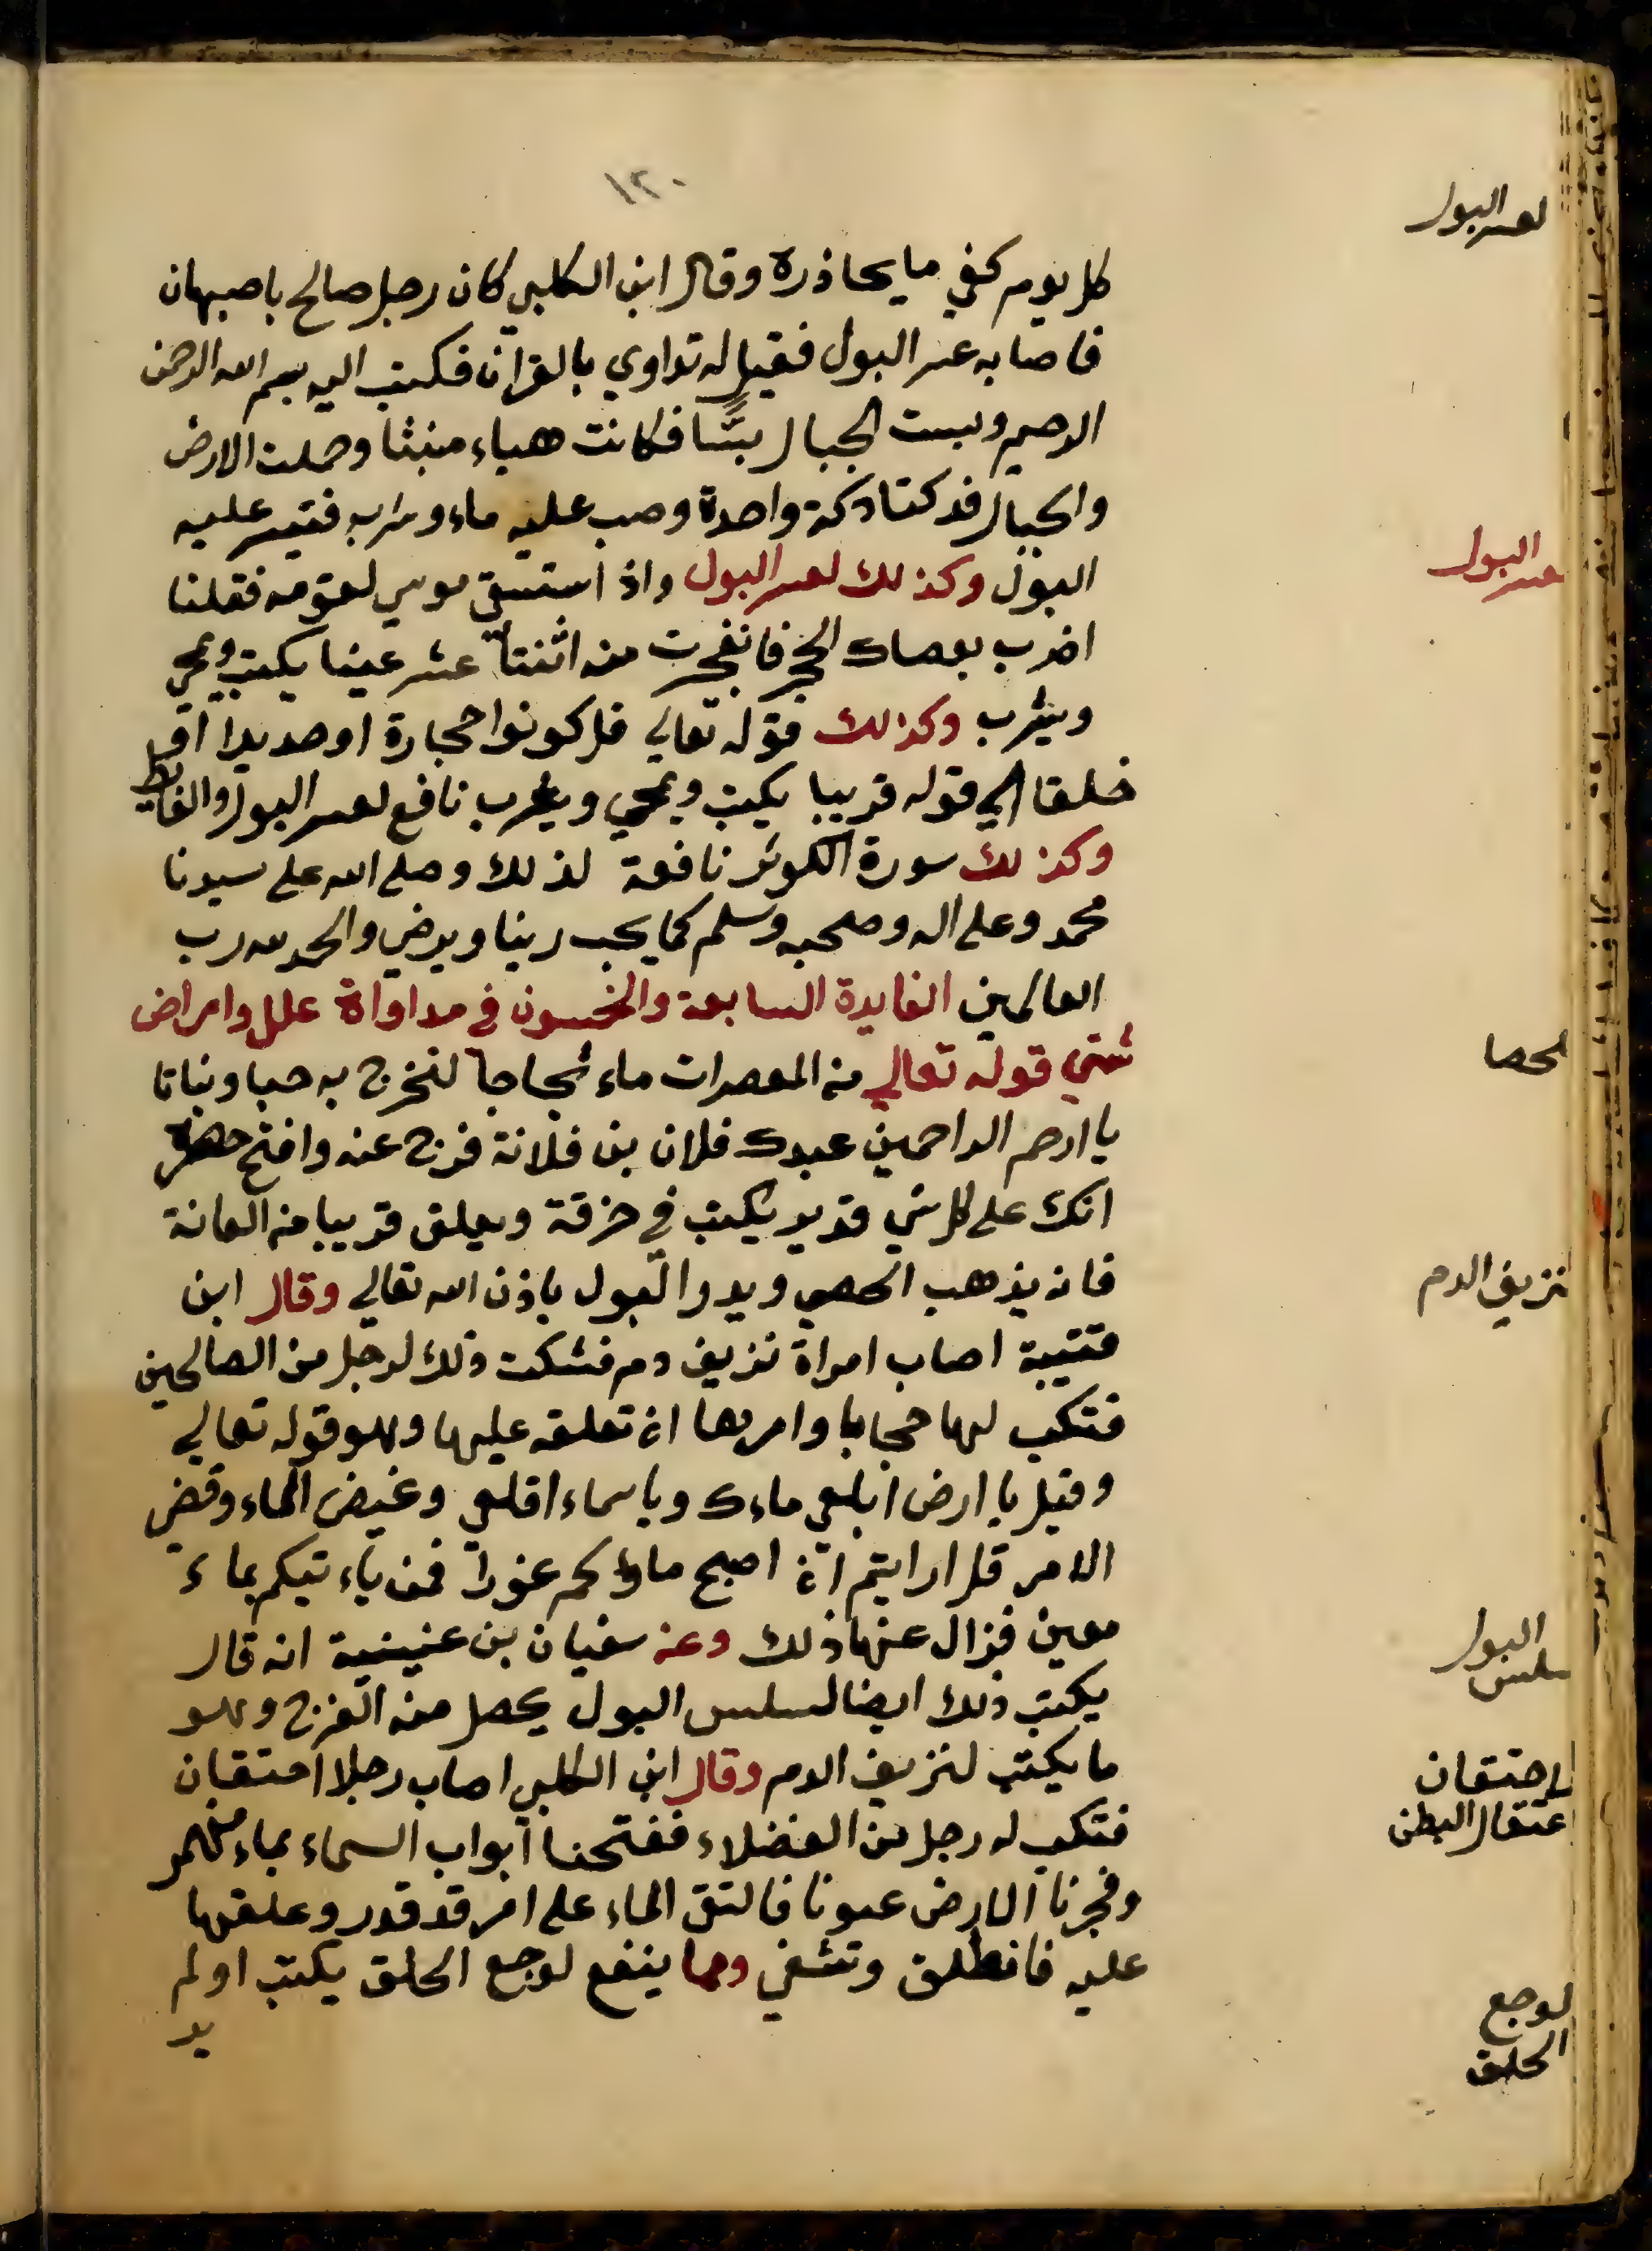 ١٢٠
لعسر البول
كل يوم كفي ما يحاذره وقال ابن الكلبي كان رجل صالح باصبهان
فاصابه عسر البول فقيل له تداوي بالقران فكتب اليه بسم الله الرحمن
الرحيم وبست الجبال بسًّا فكانت هباء منبثا وحملت الارض
والجبال فدكتا دكة واحدة وصب عليه ماء وشربه فتيسر عليه
البول وكذلك لعسر البول واذ استسقى موسي لقومه فقلنا
عسر البول
اضرب بعصاك الحجر فانفجرت منه اثنتا عشر عينا يكتب ويمحي
ويشرب وكذلك قوله تعالي قل كونوا حجارة او حديدا او
خلقا الي قوله قريبا يكتب ويمحي ويشرب نافع لعسر البول والغايط
وكذلك سورة الكوثر نافعة لذلك وصلي الله علي سيدنا
محمد وعلي اله وصحبه وسلم كما يحب ربنا ويرضي والحمد لله رب
العالمين الفايدة السابعة والخمسون في مداواة علل وامراض
شتي قوله تعالي من المعصرات ماء ثجاجا لنخرج به حبا ونباتا
لحصا
يا ارحم الراحمين عبدك فلان بن فلانة فرج عنه وافتح حصره
انك علي كل شي قدير يكتب في خرقة ويعلق قريبا من العانة
فانه يذهب الحصي ويدر البول باذن الله تعالي وقال ابن
نزيف الدم
قتيبة اصاب امراة نزيف دم فشكت ذلك لرجل من الصالحين
فتكب لها حجابا وامرها ان تعلقه عليها وهو قوله تعالي
وقيل يا ارض ابلعي ماءك ويا سماء اقلعي وغيض الماء وقضي
الامر قل ارايتم ان اصبح ماؤكم غورا فمن ياء تيكم بماء
معين فزال عنها ذلك وعن سفيان بن عنينية انه قال
يكتب ذلك ايضا لسلس البول يحصل منه الفرج وهو
سلس البول
ما يكتب لنزيف الدم وقال ابن الكلبي اصاب رجلا احتقان
لاحتقان
فتكب له رجل من الفضلاء ففتحنا ابواب السماء بماء منهمر
عتقال البطن
وفجرنا الارض عيونا فالتقي الماء علي امر قد قدر وعلقها
عليه فانطلق وتشفي ومما ينفع لوجع الحلق يكتب اولم
لوجع
الحلق
ير